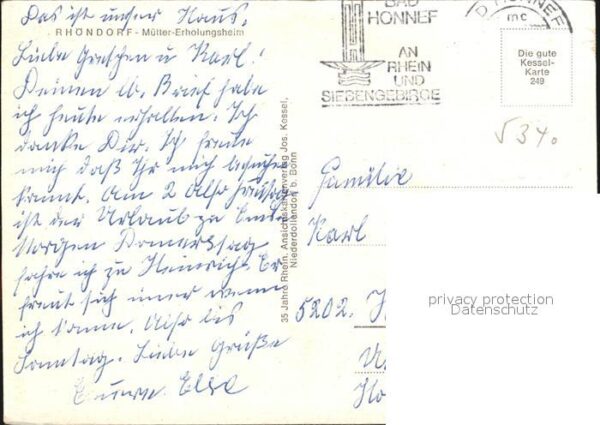 Das ist unser Haus.
RHÖNDORF - Mütter-Erholungsheim
Liebe Gretchen u Karl!
Deinen lb. Brief habe
ich heute erhalten. Ich
danke Dir. Ich freute
mich daß Ihr mich besuchen
kommt. Am 2 Also
ist der Urlaub zu Ende
Morgen Donnerstag
fahre ich zu Heinrich. Er
freut sich imer wenn
ich komme. Also bis
Sonntag. Liebe Grüße
Eure Elsa
35 Jahre Rhein. Ansichtskartenverlag Jos. Kessel,
Niederdollendorf b. Bonn
BAD
HONNEF
AN
RHEIN
UND
SIEBENGEBIRGE
D HONNEF
mc
Die gute
Kessel-
Karte
249
Familie
Karl
5202.
privacy protection
Datenschutz